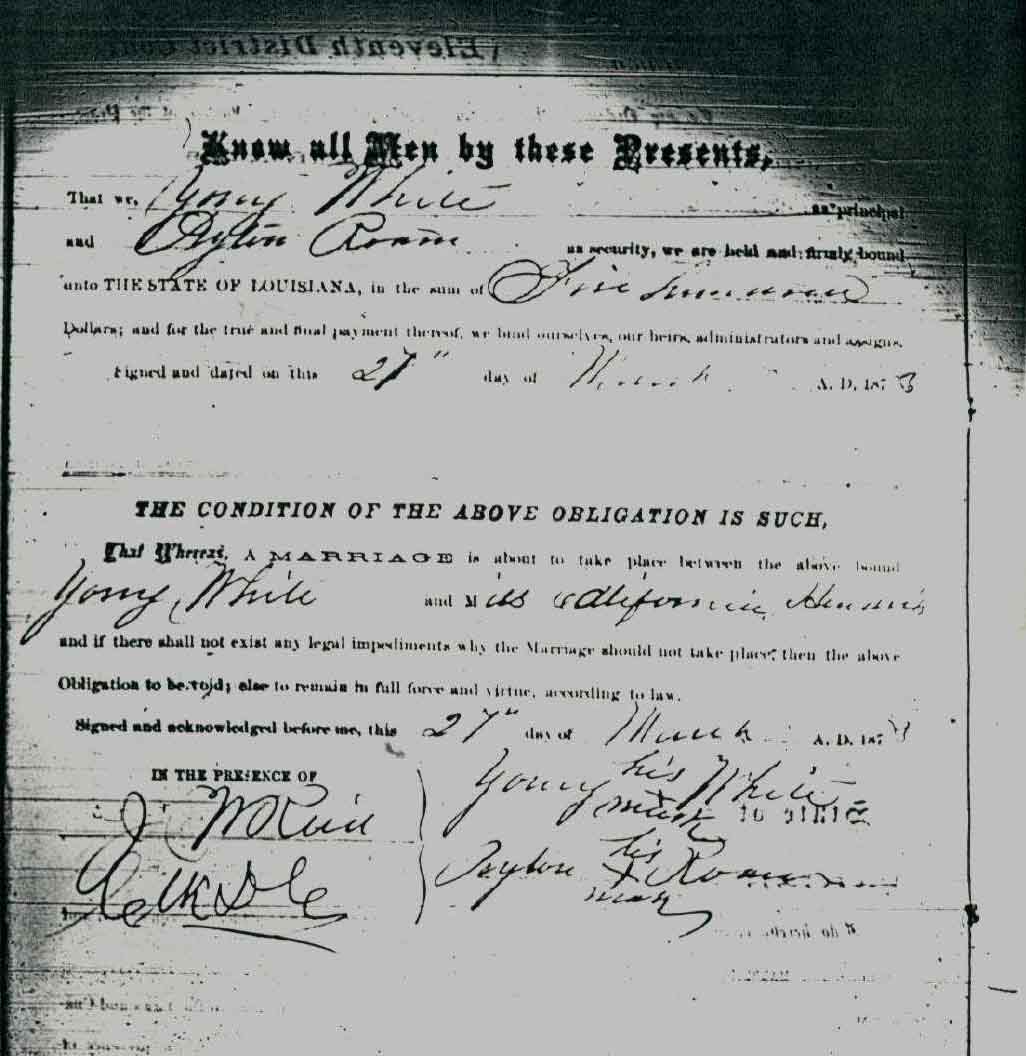 Eleventh District Cou
Know all Men by these Presents,
That we, Yony White as principal
and Peyton Roam as security, we are held and firmly bound
unto THE STATE OF LOUISIANA, in the sum of Five hundred
Dollars; and for the true and final payment thereof, we bind ourselves, our heirs, administrators and assigns.
Signed and dated on this 27" day of March A. D. 1873
THE CONDITION OF THE ABOVE OBLIGATION IS SUCH,
That Whereas, A MARRIAGE is about to take place between the above bound
Yony White and Miss California
and if there shall not exist any legal impediments why the Marriage should not take place, then the above
Obligation to be void; else to remain in full force and virtue, according to law.
Signed and acknowledged before me, this 27" day of March A. D. 1873
IN THE PRESENCE OF
Yony his White
mark
J W
his
Peyton X Roam
mark